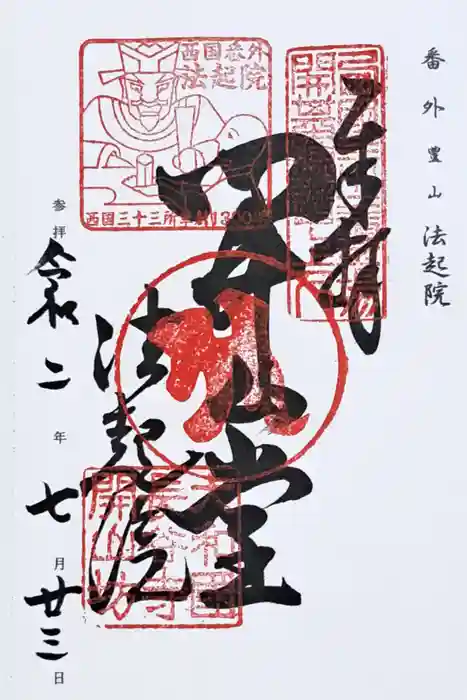 番外豊山法起院
奉拝
開山堂
法起院
参拝令和二年七月廿三日
西国番外
法起院
西国三十三所草創1300年
大和国
長谷寺
開山坊